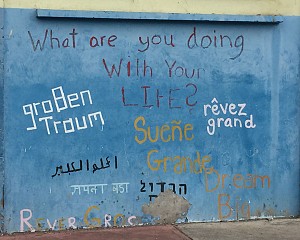 What are you doing
With Your
LIFE?
großen
Traum
rêvez
grand
Sueñe
Grande
احلموا الكبير
सपना बड़ा
הגדול
Dream
Big